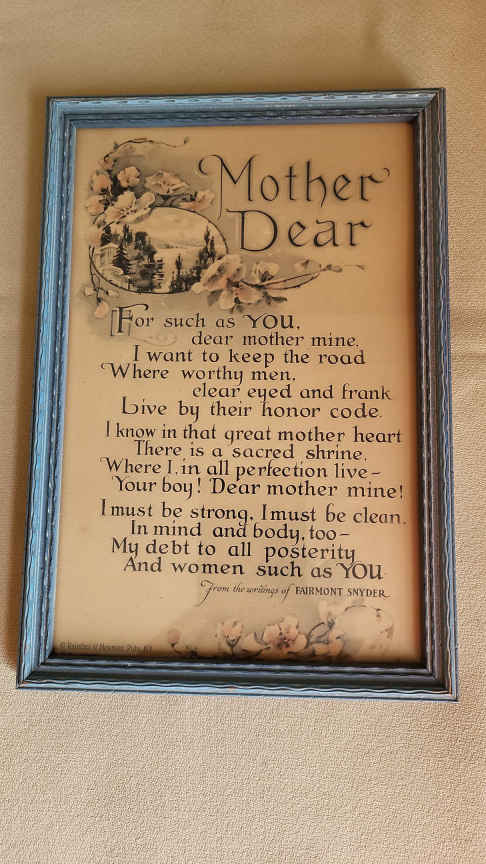 Mother
Dear
For such as YOU,
dear mother mine,
I want to keep the road
Where worthy men,
clear eyed and frank
Live by their honor code.
I know in that great mother heart
There is a sacred shrine,
Where I, in all perfection live–
Your boy! Dear mother mine!
I must be strong, I must be clean,
In mind and body, too–
My debt to all posterity
And women such as YOU
From the writings of FAIRMONT SNYDER